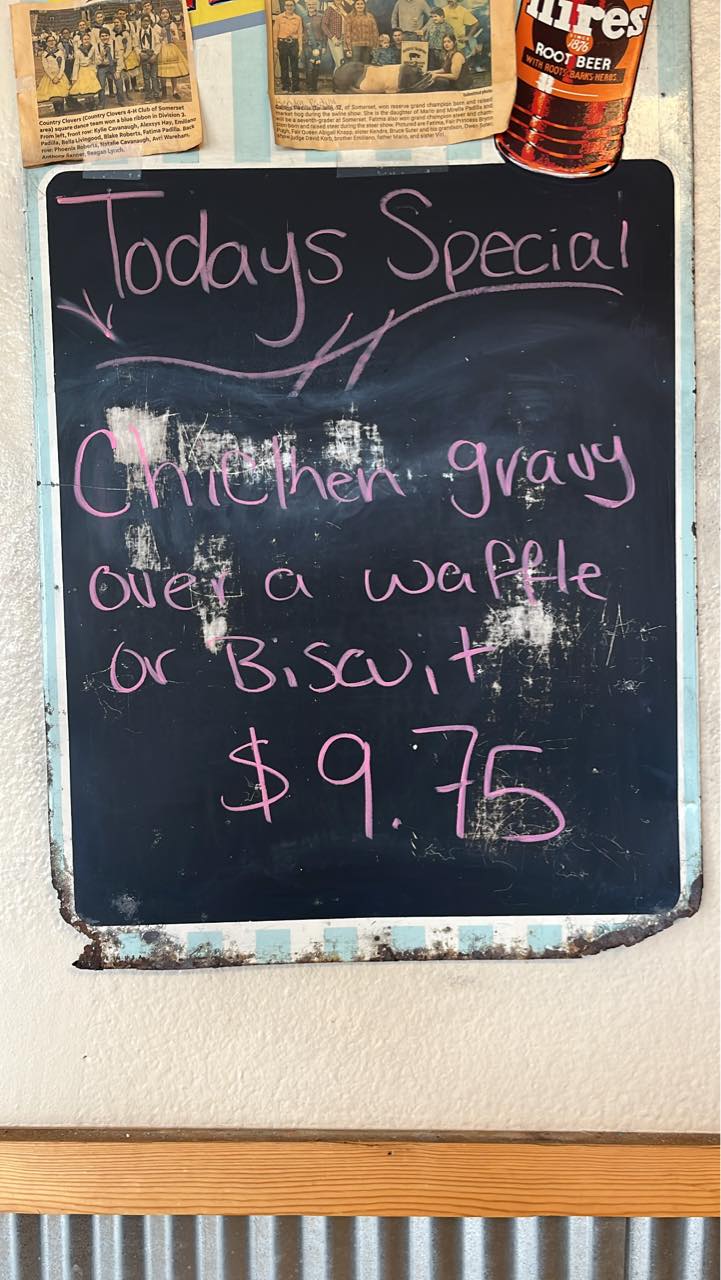 Country Clovers (Country Clovers 4-H Club of Somerset
area) square dance team won a blue ribbon in Division 3.
From left, front row: Kylie Cavanaugh, Alexsys Hay, Emiliano
Padilla, Bella Livingood, Blake Roberts, Fatima Padilla. Back
row: Phoenix Roberts, Natalie Cavanaugh, Avri Wareham,
Anthony Banner, Reagan Lynch.
Submitted photo
12, of Somerset, won reserve grand champion born and raised
market hog during the swine show. She is the daughter of Mario and Mirella Padilla and
will be a seventh-grader at Somerset. Fatima also won grand champion steer and
born and raised steer during the steer show. Pictured are Fatima, Fair Princess
Pugh, Fair Queen Abigail Knapp, sister Kendra, Bruce Suter and his grandson, Owen
judge David Korb, brother Emiliano, father Mario, and sister
Hires
SINCE
1876
ROOT BEER
WITH ROOTS BARKS HERBS
Todays Special
Chichen gravy
over a waffle
or Biscuit
$9.75